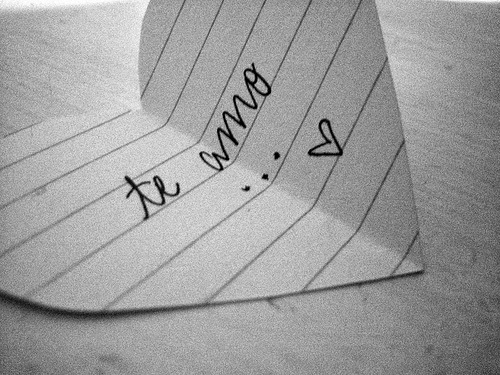 te amo
... ♡